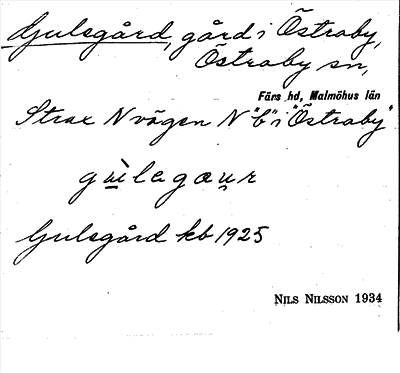 Gulsgård, gård i Östraby,
Östraby sn,
Färs hd, Malmöhus län
Strax N vägen N "b" i "Östraby"
Gulsgård kb 1925
NILS NILSSON 1934